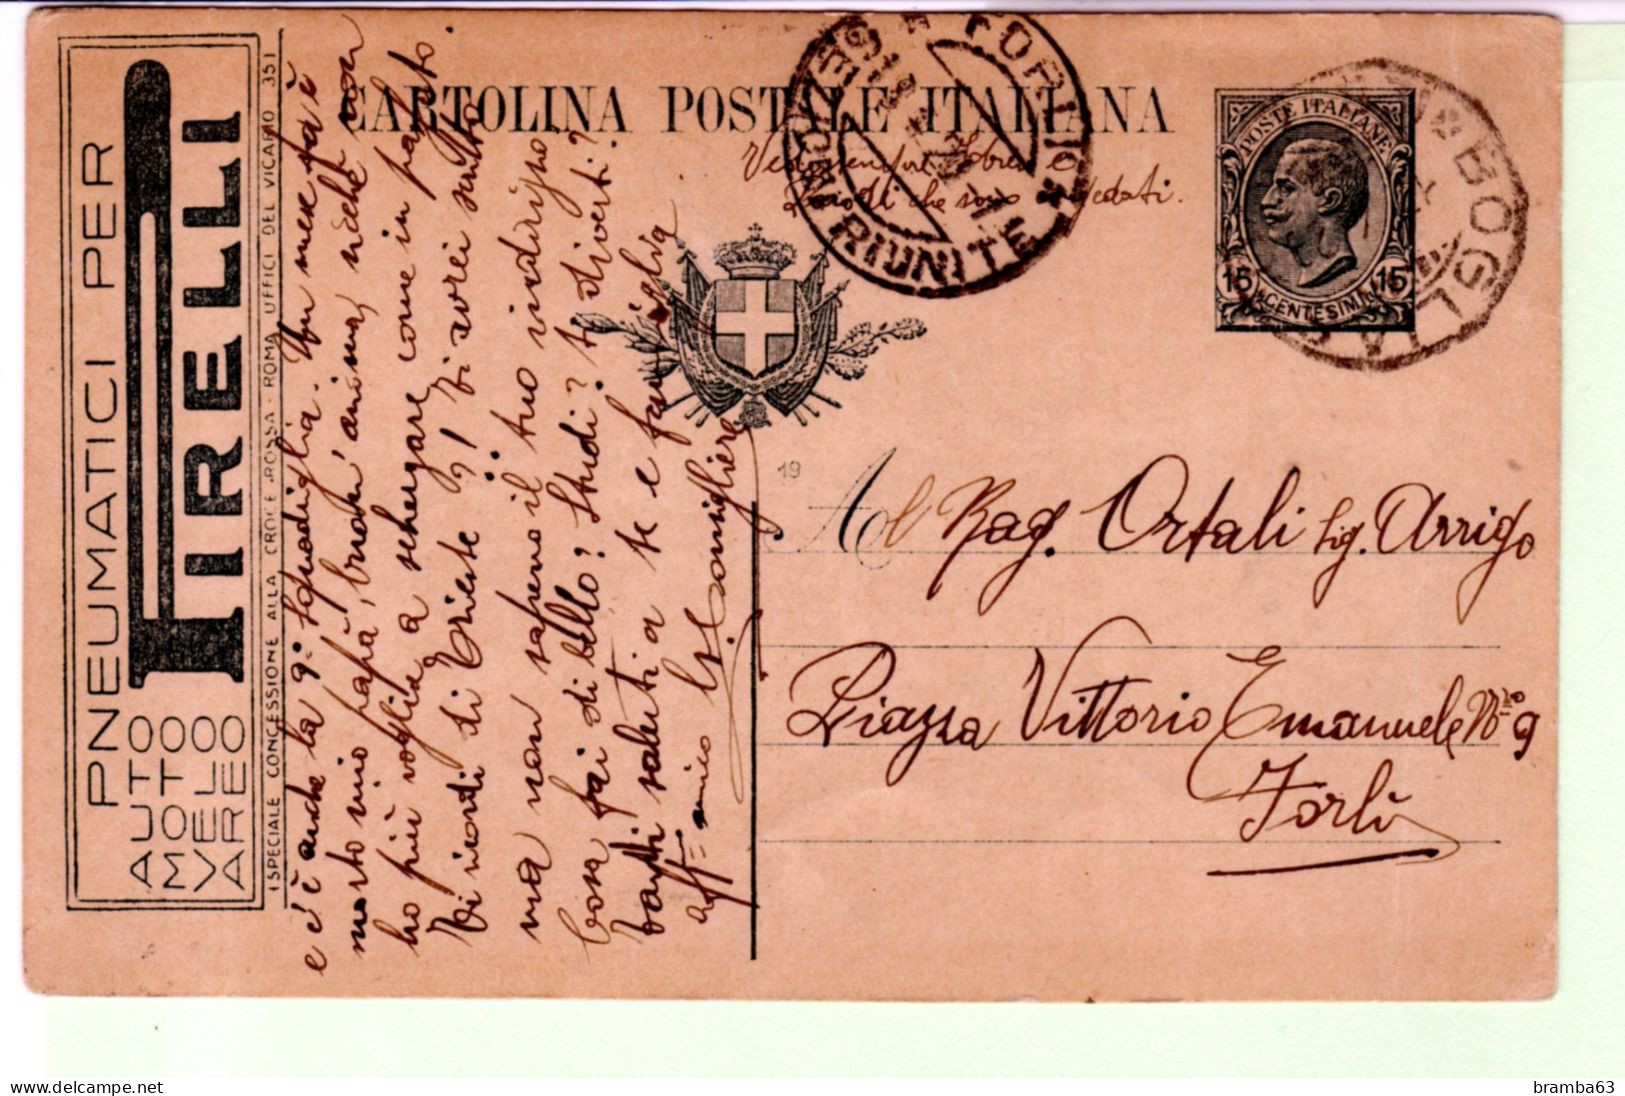 PNEUMATICI PER
PIRELLI
AUTO
MOTO
VELO
AEREO
I SPECIALE CONCESSIONE ALLA CROCE ROSSA - ROMA UFFICI DEL VICARIO 351
CARTOLINA POSTALE ITALIANA
TORTONA
RIUNITE
BOGLIA
POSTE ITALIANE
15 15
CENTESIMI
che sono
19
Al Rag. Ortali Sig. Arrigo
Piazza Vittorio Emanuele Nro 9
Forlì
e c'è anche la 9a Squadriglia. Un mese fa è
morto mio papà, buon'anima, non
ho più voglia a scherzare come in passato.
Ti ricordi di Trieste 91 Ti avrei scritto
ma non sapevo il tuo indirizzo
Cosa fai di bello? Studi? ti diverti?
Tanti saluti a te e famiglia
aff. amico Consigliere
bramba63
delcampe.net